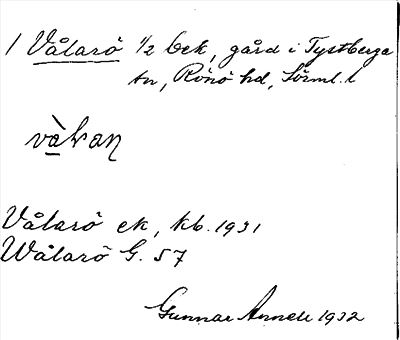 1 Vålarö ½ bek, gård i Tystberga
sn, Rönö hd, Sörml. l
Vålarö ek, kb. 1931
Wålarö G. 57
Gunnar Anneli 1932